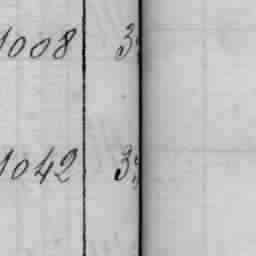 1008 3
1042 3